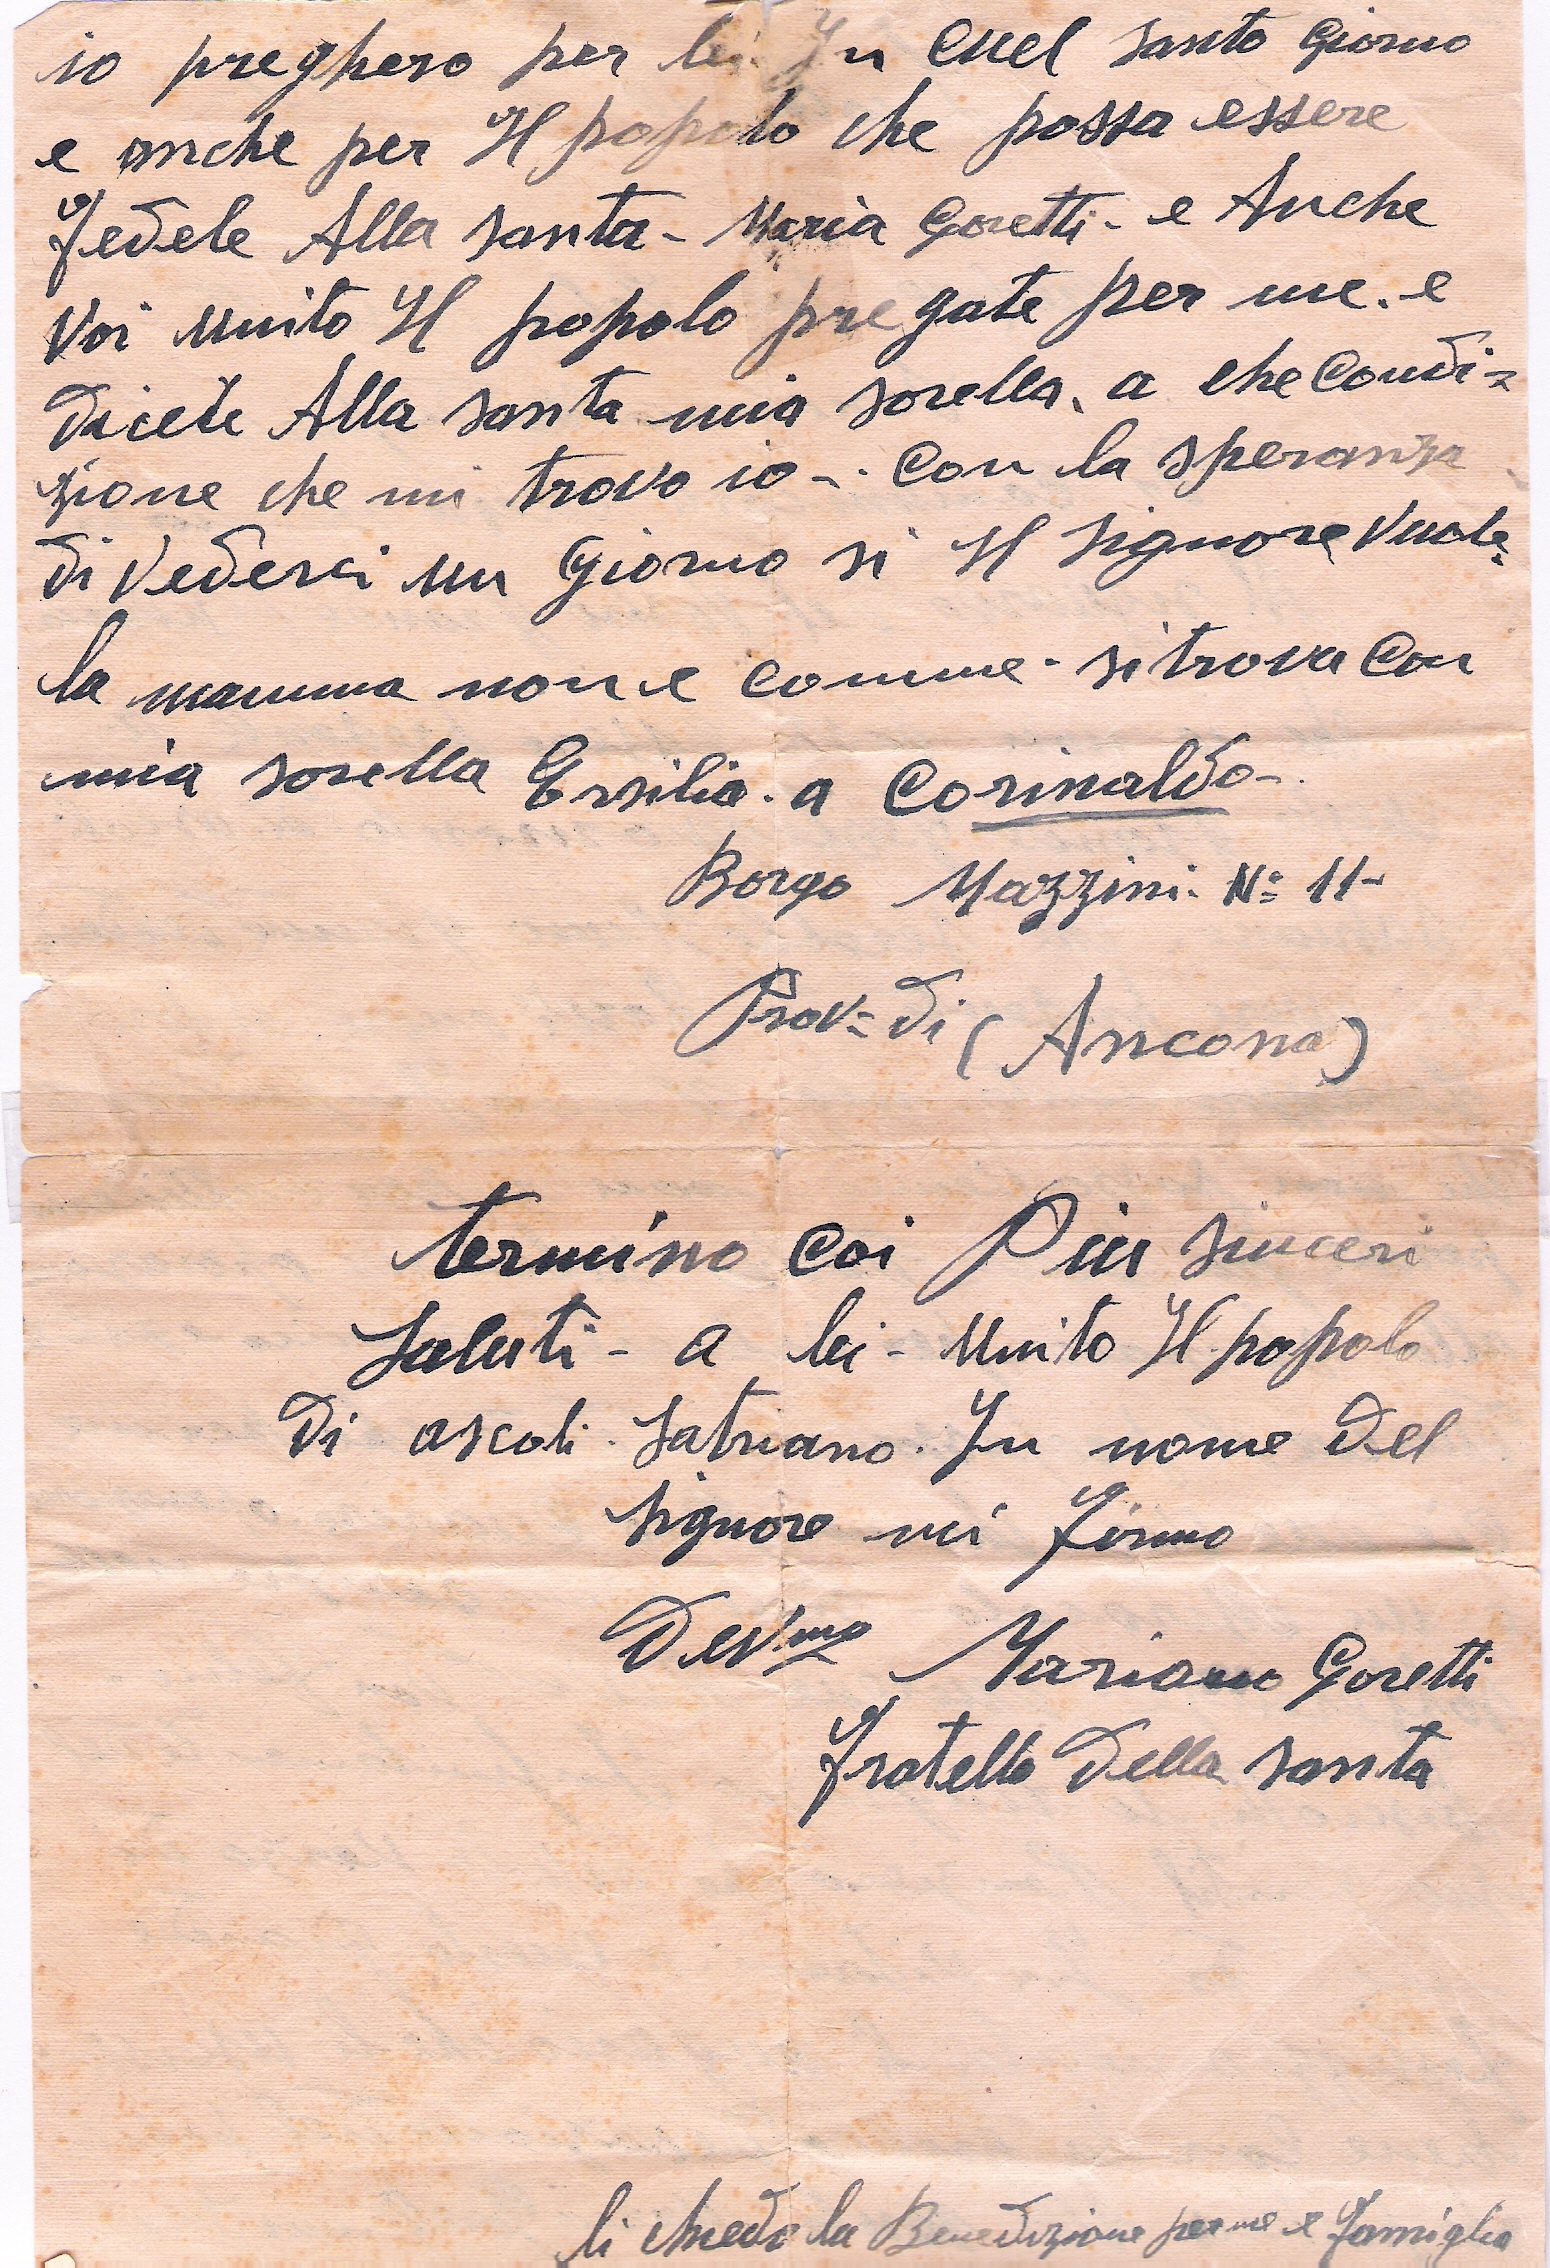 io preghero per lei In cuel santo Giorno
e anche per Il popolo che possa essere
fedele Alla santa - Maria Goretti - e Anche
Voi Unito Il popolo pregate per me. e
Dicete Alla santa mia sorella, a che Condi=
zione che mi trovo io -. Con la speranza
Di Vederci un Giorno si Il Signore Vuole.
la mamma non e comme - si trova Con
mia sorella Ersilia. a Corinaldo -.
Borgo Mazzini. No 11-
Prov= Di (Ancona)
termino Coi Piu sinceri
Saluti - a lei - Unito Il popolo
Di ascoli. Satriano. In nome Del
Signore mi firmo
Dev.mo Mariano Goretti
fratello Della santa
li chiedo la Benedizione per me e famiglia